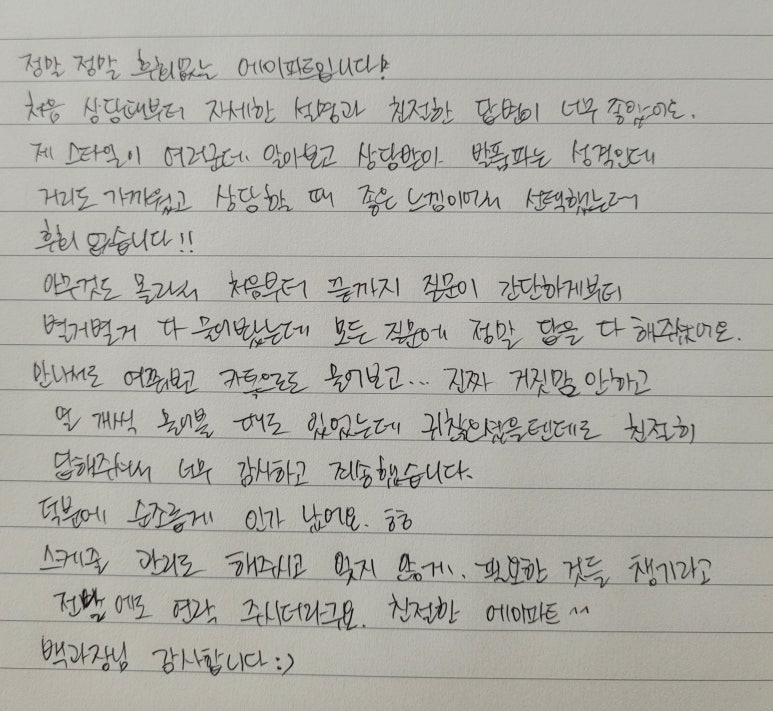 정말 정말 후회없는 에이파트입니다!
처음 상담때부터 자세한 설명과 친절한 답변이 너무 좋았어요.
제 스타일이 여러군데 알아보고 상담받아 발품파는 성격인데
거리도 가까웠고 상담할 때 좋은 느낌이어서 선택했는데
후회 없습니다!!
아무것도 몰라서 처음부터 끝까지 질문이 간단하게부터
별거별거 다 물어봤는데 모든 질문에 정말 답을 다 해주셨어요.
만나서도 여쭤보고 카톡으로도 물어보고... 진짜 거짓말 안하고
열 개씩 물어볼 때도 있었는데 귀찮으셨을텐데도 친절히
답해주셔서 너무 감사하고 죄송했습니다.
덕분에 순조롭게 인가 났어요. ㅎㅎ
스케줄 관리도 해주시고 잊지 않게, 필요한 것들 챙기라고
전날에도 연락 주시더라구요. 친절한 에이파트^^
백과장님 감사합니다:)